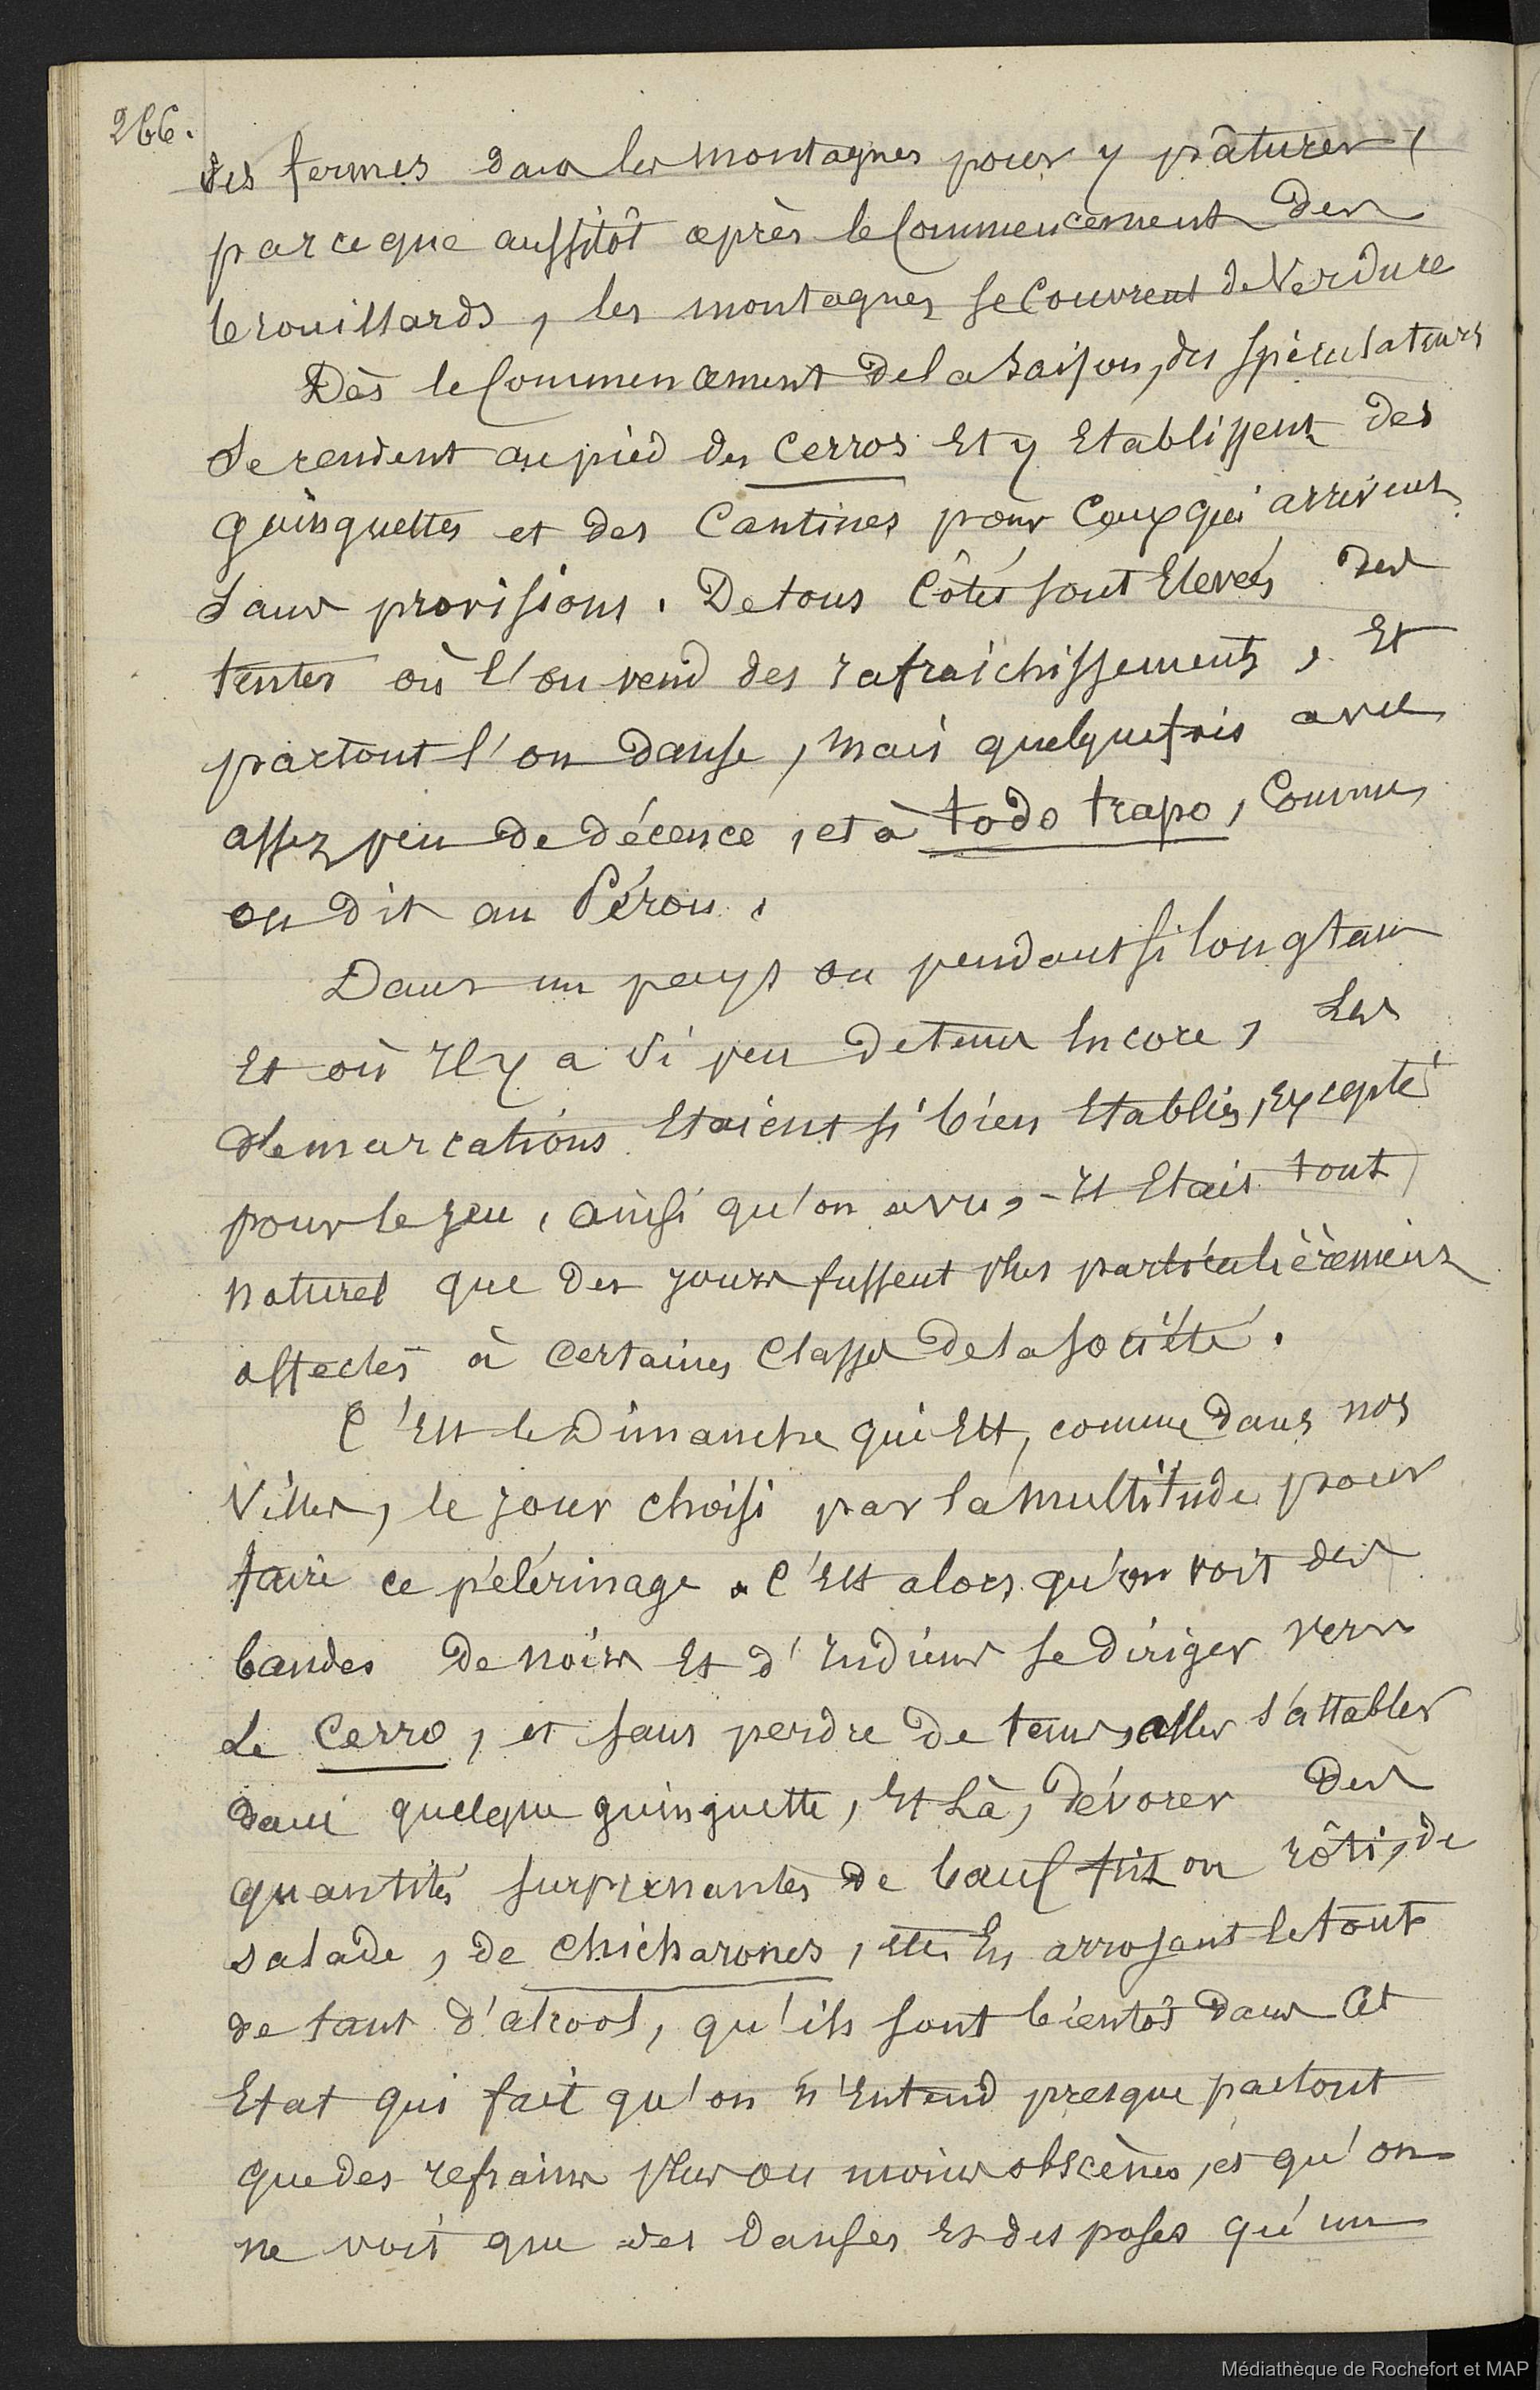 266.
des fermes dans les montagnes pour y pâturer,
parceque aussitôt après le Commencement des
brouillards, les montagnes se Couvrent de Verdure
Dès le Commencement de la saison, des spéculateurs
se rendent au pied des Cerros Et y Etablissent des
guinguettes et des Cantines pour Ceux qui arrivent
sans provisions. De tous Côtés sont Elevées des
tentes où l'on vend des rafraichissements, Et
partout l'on danse, mais quelquefois avec
assez peu de décence, et à todo trapo, Comme
on dit au Pérou.
Dans un pays ou pendant si longtems
Et où Il y a si peu de tems Encore, Les
démarcations Etaient si bien Etablies, Excepté
pour le jeu, ainsi qu'on a vu, - Il Etait tout
naturel que des jours fussent plus particulièrement
affectés à Certaines Classes de la société.
C'Est le Dimanche qui Est, comme dans nos
Villes, le jour choisi par la multitude pour
faire ce pélérinage. C'Est alors qu'on voit des
bandes de noirs Et d'Indiens se diriger vers
Le Cerro, et sans perdre de tems, aller s'attabler
dans quelque guinguette, Et Là, dévorer des
quantités surprenantes de bœuf frit ou rôti, de
salade, de Chicharones, etc. En arrosant le tout
de tant d'alcool, qu'ils sont bientôt dans Cet
Etat qui fait qu'on n'Entend presque partout
que des refrains plus ou moins obscènes, et qu'on
ne voit que des danses Et des poses qu'un
Médiathèque de Rochefort et MAP